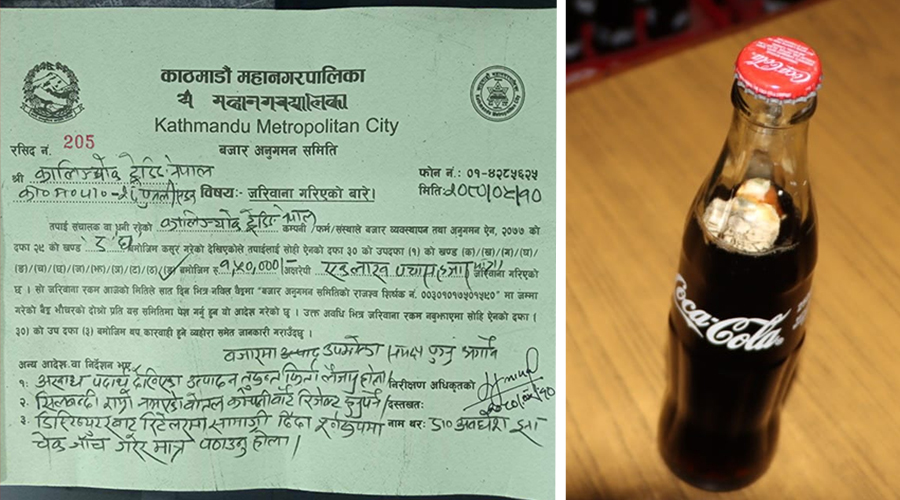 काठमाडौं महानगरपालिका
Kathmandu Metropolitan City
बजार अनुगमन समिति
रसिद नं. 205
श्री कालिञ्चोक ट्रेडिङ नेपाल
फोन नं.: ०१-४२८५६२५
का०म०पा०
विषय: जरिवाना गरिएको बारे।
मिति: २०८०/०८/१०
तपाईं संचालक वा धनी रहेको कालिञ्चोक ट्रेडिङ नेपाल कम्पनी / फर्म/संस्थाले बजार व्यवस्थापन तथा अनुगमन ऐन, २०७७ को
दफा २९ को खण्ड बमोजिम कसुर गरेको देखिएकोले तपाईंलाई सोही ऐनको दफा ३० को उपदफा (१) को खण्ड (क)/(ख)/(ग)/(घ)/
(ङ)/(च)/(छ)/(ज)/(झ)/(ञ)/(ट)/(ठ)/(ड) बमोजिम रु. १,५०,०००/- अक्षरेपी एकलाख पचास हजार मात्र जरिवाना गरिएको
छ । सो जरिवाना रकम आजको मितिले सात दिन भित्र नबिल बैङ्क "बजार अनुगमन समितिको राजस्व शिर्थक नं. ००३०१०१७५०१५८०" मा जम्मा
गरेको बैङ्क भौचरको दोश्रो प्रति यस समितिमा पेश गर्नु हुन यो आदेश गरेको छु । उक्त अवधि भित्र जरिवाना रकम नबुझाएमा सोहि ऐनको दफा (
३०) को उप दफा (३) बमोजिम थप कारवाही हुने व्यहोरा समेत जानकारी गराउँदछु ।
अन्य आदेश वा निर्देशन भए
बजारमा
१. अखाद्य पदार्थ देखिएका उत्पादन तुरुन्त फिर्ता लैजानु होला
निरीक्षण अधिकृतको
२. सिलबन्दी राम्रो नभएको बोतल कम्पनीबाट रिजेक्ट हुनुपर्ने
दस्तखत:
२०८०/०८/१०
३. डिस्ट्रिब्युटरबाट रिटेलरमा सामाग्री दिँदा
नाम थर: डा० अवधेश झा
चेक जाँच गरेर मात्र पठाउनु होला।
Coca-Cola
Coca-Cola